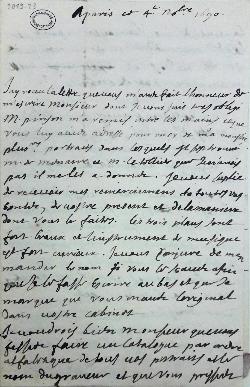 Aparis ce 4e 9bre 1690
Jay receu la lettre que vous maves fait lhonneur de
mescrire Monsieur dont je vous suis tres oblige
M. pinson ma remis entre les mains ce que
vous luy aves adressé pour moy
plusrs portraits dans lesquels
et M. le tellier que je navois
pas il me les a donnés. Je vous suplie
de recevoir mes remerciemens de toutes vos
bontés, de vostre present et de la maniere
dont vous le faites. les trois plans sont
fort beaux et linstrument de musique
est fort curieux. Je vous conjure de me
mander le nom si vous le scaves afin
que je le fasse escrire au bas et que je
marque que vous en aves loriginal
dans vostre cabinet
Je voudrois bien Monsieur que vous
fissiés faire un catalogue par ordre
alfabetique de tous vos portraits et le
nom du graveur et que vous